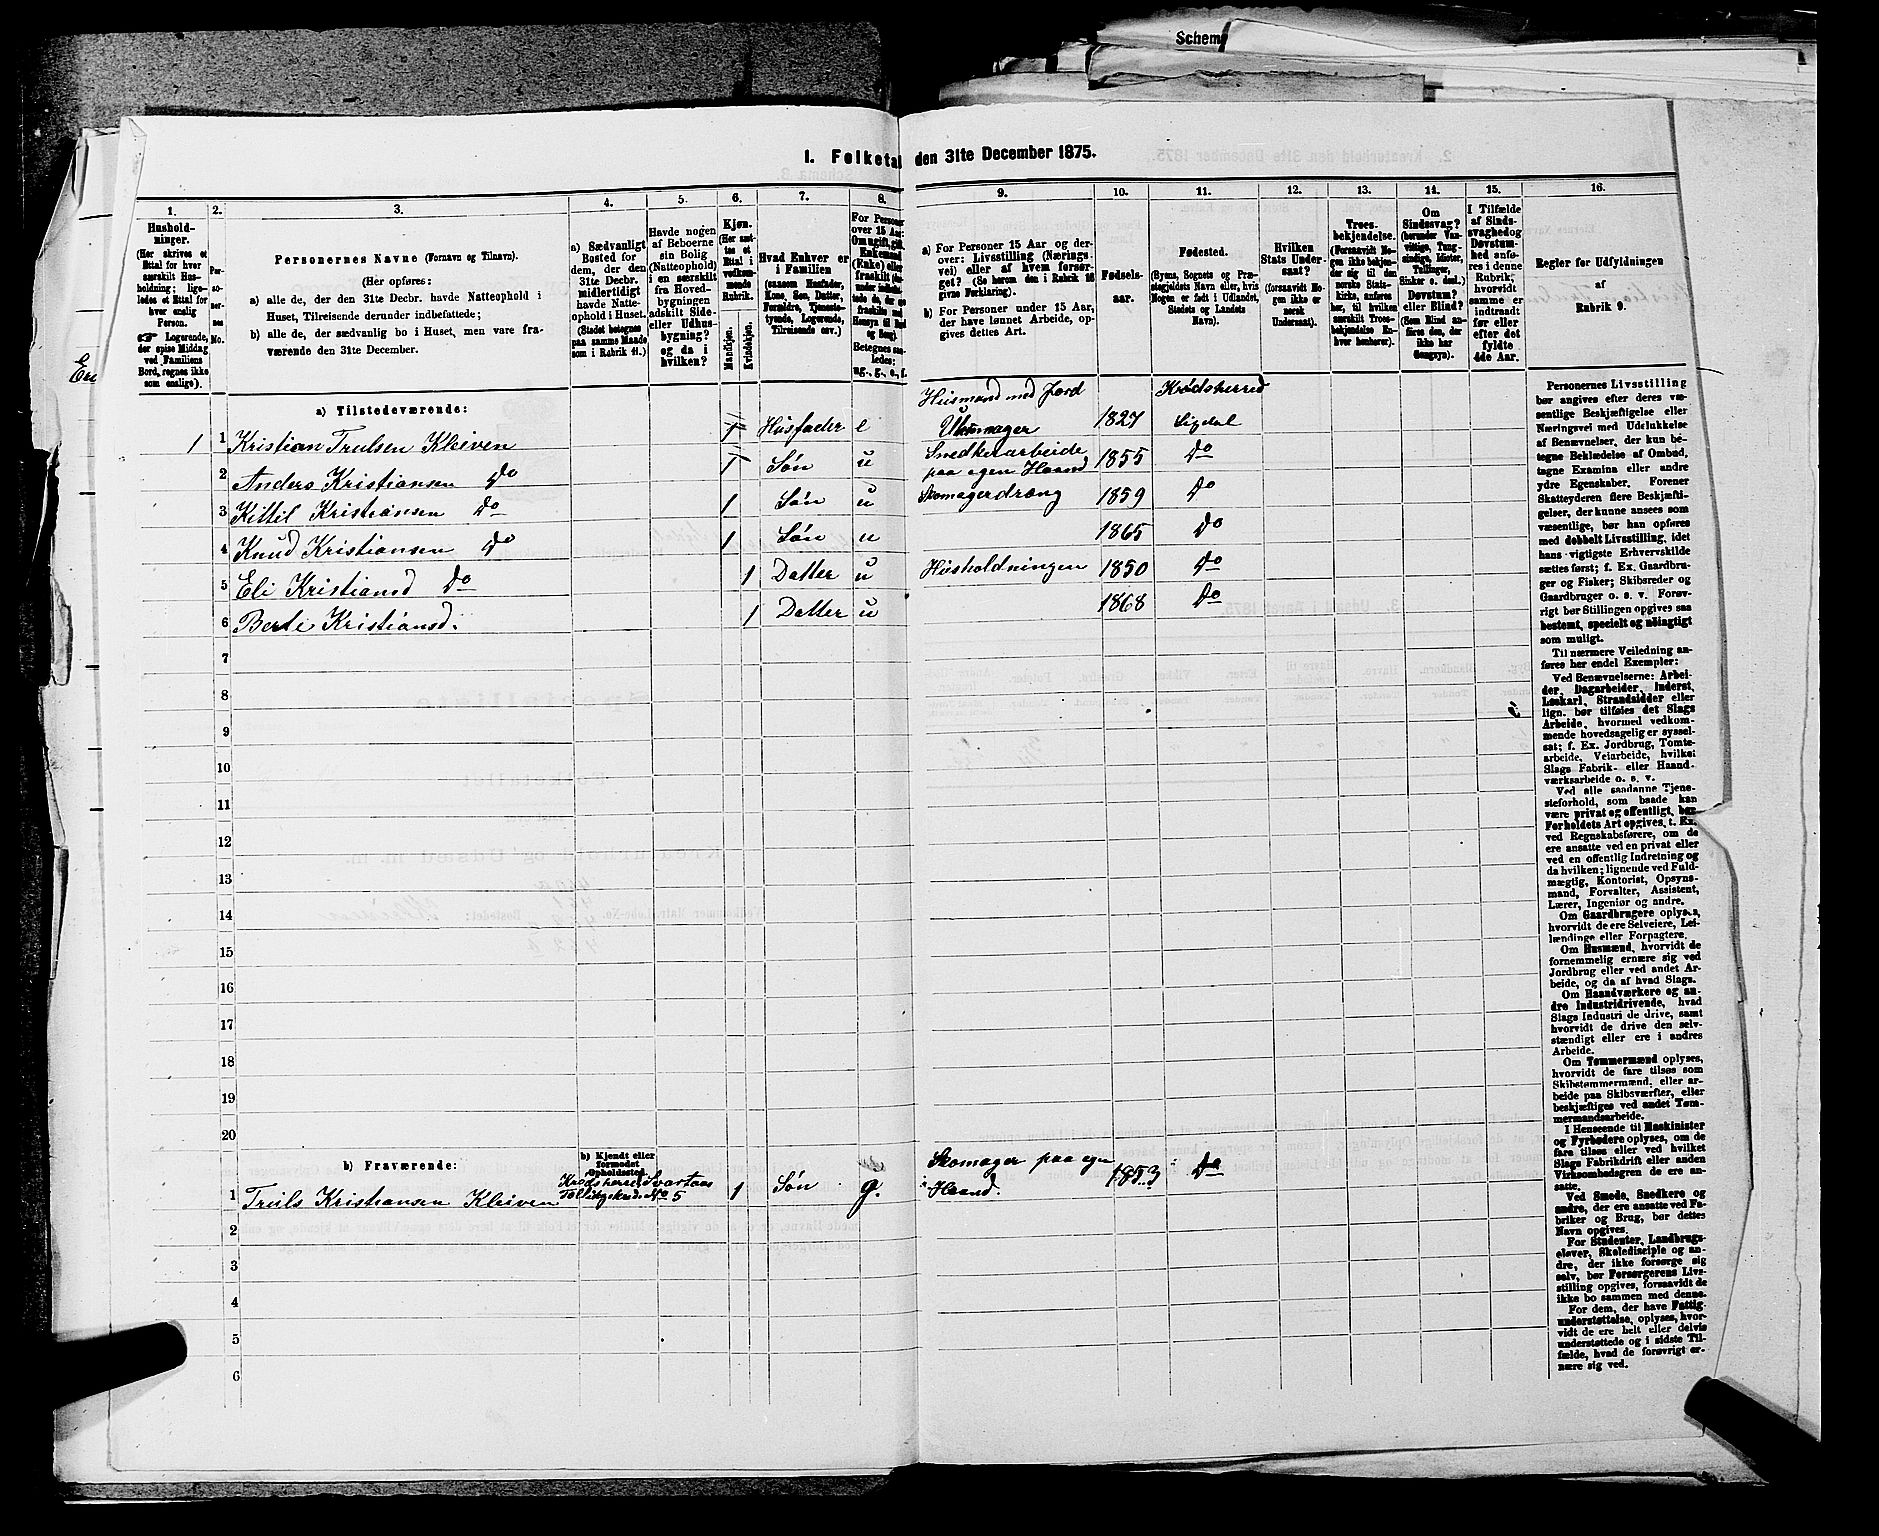 Schem
1. Folketal den 31te December 1875.
1.
2.
3.
4.
5.
6.
7.
8.
9.
10.
11.
12.
13.
14.
15.
16.
Hushold-
ninger.
(Her skrives et
Ettal for hver
særskilt Hus-
holdning; lige-
ledes et Ettal for
hver enslig
Person.
Logerende,
der spise Middag
ved Familiens
Bord, regnes ikke
som enslige).
Personernes No.
Personernes Navne (Fornavn og Tilnavn).
(Her opføres:
a) alle de, der den 31te Decbr. havde Natteophold i
Huset, Tilreisende derunder indbefattede;
b) alle de, der sædvanlig bo i Huset, men vare fra-
værende den 31te December.
a) Sædvanligt
Bosted for
dem, der den
31te Decbr.
midlertidigt
havde Natte-
ophold i Huset.
(Stedet betegnes
paa samme Maade
som i Rubrik 11.)
Havde nogen
af Beboerne
sin Bolig
(Natteophold)
i en særskilt
fra Hoved-
bygningen
adskilt Side-
eller Udhus-
bygning?
og da i
hvilken?
Kjøn.
(Her sæt-
tes et
Ettal i
vedkom-
mende
Rubrik.
Mandkjøn.
Kvindekjøn.
Hvad Enhver er
i Familien
(saasom Husfader,
Kone, Søn, Datter,
Forældre, Tjeneste-
tyende, Logerende,
Tilreisende osv.)
For Personer
over 15 Aar:
Om ugift, gift,
Enkemand
(Enke) eller
fraskilt
Betegnes saa-
ledes:
ug., g., e., f.
a) For Personer 15 Aar og der-
over: Livsstilling (Nærings-
vei) eller af hvem forsør-
get? (Se herom den i Rubrik 16
givne Forklaring).
b) For Personer under 15 Aar,
der have lønnet Arbeide, op-
gives dettes Art.
Fødsels-
aar.
Fødested.
(Byens, Sognets og Præ-
stegjeldets Navn eller, hvis
Nogen er født i Udlandet,
Stedets og Landets
Navn).
Hvilken
Stats Under-
saat?
(forsaavidt No-
gen ikke er
norsk
Undersaat).
Troes-
bekjendelse.
(Forsaavidt No-
gen ikke bekjen-
der sig til den
norske Stats-
kirke, anføres
her, til hvilken
særskilt Troes-
bekjendelse En-
hver henhører).
Om
Sindssvag?
(herunder Van-
vittige, Tung-
sindige, Idioter,
Tullinger,
Sinker o. desl.)
Døvstum?
eller Blind?
(Som Blind an-
føres den, der
ikke har
Gangsyn).
I Tilfælde
af Sinds-
svaghed og
Døvstum-
hed anfø-
res i denne
Rubrik,
hvorvidt
samme er
indtraadt
før eller
efter det
fyldte
4de Aar.
Regler for Udfyldningen
af
Rubrik 9.
a) Tilstedeværende:
1 1 Kristian Trulsen Kleiven 1 Husfader e Husmand med Jord Uhrmager 1827 Krødsherred Sigdal
2 Anders Kristiansen Do 1 Søn u Snedkerarbeide paa egen Haand 1855 Do
3 Kittil Kristiansen Do 1 Søn u Skomagerdræng 1859 Do
4 Knud Kristiansen Do 1 Søn u 1865 Do
5 Eli Kristiansd Do 1 Datter u Husholdningen 1850 Do
6 Berte Kristiansd. 1 Datter u 1868 Do
7
8
9
10
11
12
13
14
15
16
17
18
19
20
b) Fraværende:
b) Kjendt eller
formodet
Opholdssted.
1 Truls Kristiansen Kleiven Krødsherred Svartaas No 5 1 Søn g. Skomager paa egen Haand. 1853 Do
2
3
4
5
6
Personernes Livsstilling
bør angives efter deres væ-
sentlige Beskjæftigelse eller
Næringsvei med Udelukkelse
af Benævnelser, der kun be-
tegne Beklædelse af Ombud,
tagne Examina eller andre
ydre Egenskaber. Forener
Skatteyderen flere Beskjæfti-
gelser, der kunne ansees som
væsentlige, bør han opføres
med dobbelt Livsstilling, idet
hans vigtigste Erhvervskilde
sættes først; f. Ex. Gaardbru-
ger og Fisker; Skibsreder og
Gaardbruger o. s. v. Forøv-
rigt bør Stillingen opgives saa
bestemt, specielt og nöiagtigt
som muligt.
Til nærmere Veiledning an-
føres her endel Exempler:
Ved Benævnelserne: Arbei-
der, Dagarbeider, Inderst,
Løskarl, Strandsidder eller
lign. bør tilføies det Slags
Arbeide, hvormed vedkom-
mende hovedsagelig er syssel-
sat; f. Ex. Jordbrug, Tomte-
arbeide, Veiarbeide, hvilket
Slags Fabrik- eller Haand-
værksarbeide o. s. v.
Ved alle saadanne Tjene-
steforhold, som baade kan
være privat og offentligt, bør
Forholdets Art opgives, t. Ex.
ved Regnskabsførere, om de
ere ansatte ved en privat eller
ved en offentlig Indretning og
da hvilken; lignende ved Fuld-
mægtig, Kontorist, Opsyns-
mand, Forvalter, Assistent,
Lærer, Ingeniør og andre.
Om Gaardbrugere oplyses,
hvorvidt de ere Selveiere, Lei-
lændinge eller Forpagtere.
Om Husmænd, hvorvidt de
fornemmelig ernære sig ved
Jordbrug eller ved andet Ar-
beide, og da af hvad Slags.
Om Haandværkere og an-
dre Industridrivende, hvad
Slags Industri de drive, samt
hvorvidt de drive den selv-
stændigt eller ere i andres
Arbeide.
Om Tømmermænd oplyses,
hvorvidt de fare tilsøs som
Skibstømmermænd, eller ar-
beide paa Skibsværfter, eller
beskjæftiges ved andet Tøm-
mermandsarbeide.
I Henseende til Maskinister
og Fyrbødere oplyses, om de
fare tilsøs eller ved hvilket
Slags Fabrikdrift eller anden
Virksomhedsgren de ere an-
satte.
Ved Smede, Snedkere og
andre, der ere ansatte ved Fa-
briker og Brug, bør dettes
Navn opgives.
For Studenter, Landbrugs-
elever, Skoledisciple og an-
dre, der ikke forsørge sig
selv, bør Forsørgerens Livs-
stilling opgives, forsaavidt de
ikke bo sammen med denne.
For dem, der have Fattig-
understøttelse, oplyses, hvor-
vidt de ere helt eller delvis
understøttede og i sidste Til-
fælde, hvad de forøvrigt er-
nære sig ved.